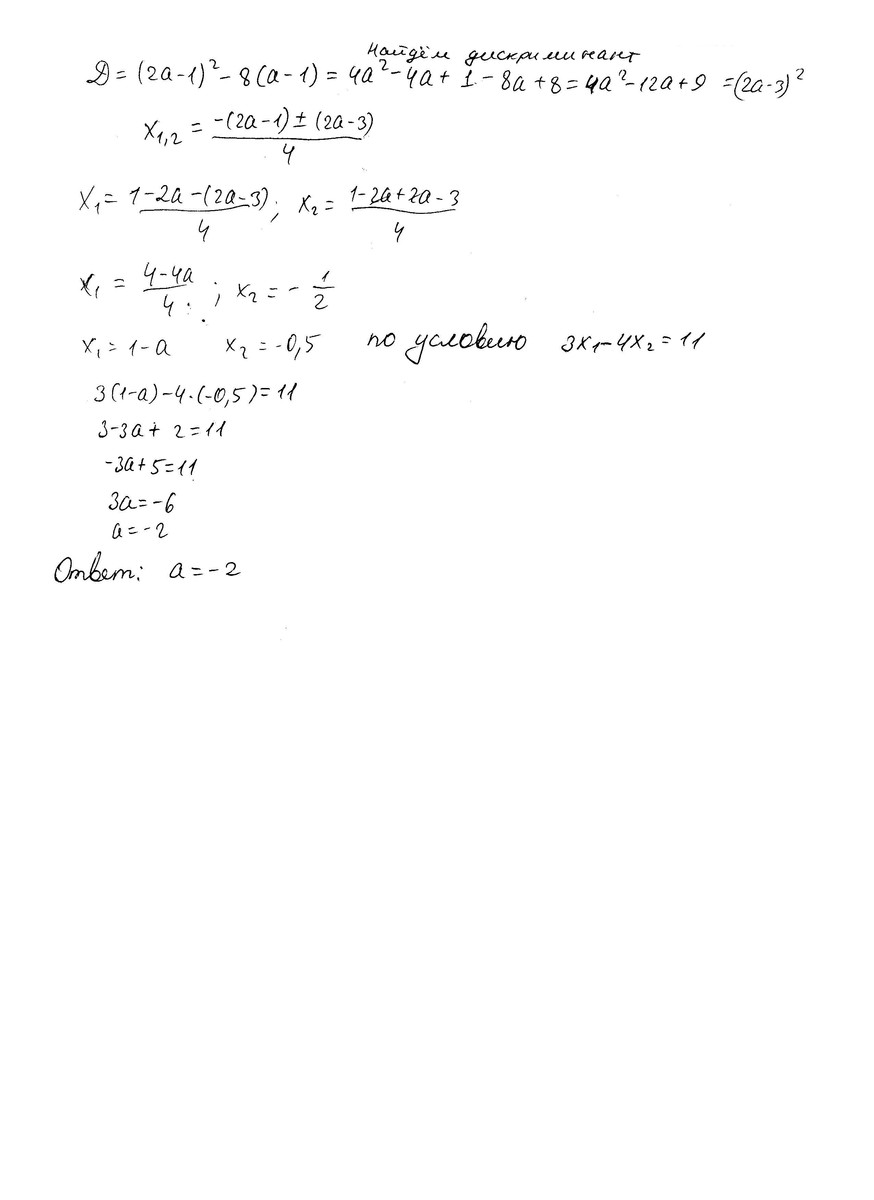 Найдём дискриминант
D = (2a-1)² - 8(a-1) = 4a² - 4a + 1 - 8a + 8 = 4a² - 12a + 9 = (2a-3)²
x₁,₂ = (-(2a-1) ± (2a-3))/4
x₁ = (1-2a-(2a-3))/4 ; x₂ = (1-2a+2a-3)/4
x₁ = (4-4a)/4 ; x₂ = - 1/2
x₁ = 1-a x₂ = -0,5 по условию 3x₁-4x₂ = 11
3(1-a)-4·(-0,5) = 11
3-3a+2 = 11
-3a+5 = 11
3a = -6
a = -2
Ответ: a = -2